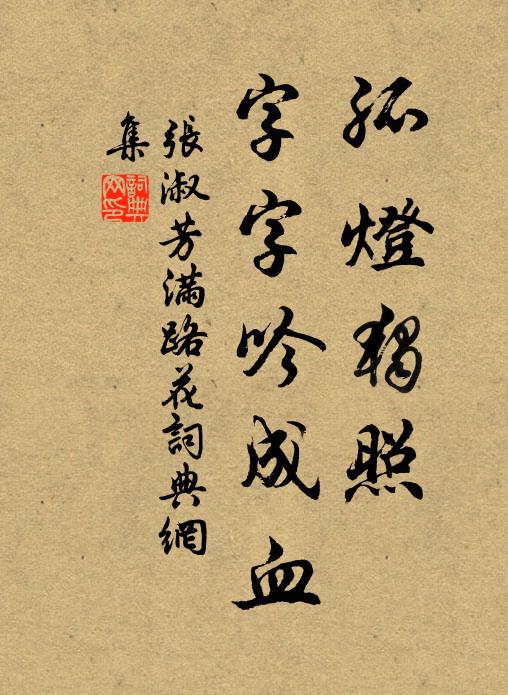 孤燈獨照
字字吟成血
張淑芳滿路花詞典網
集
詞典
网印